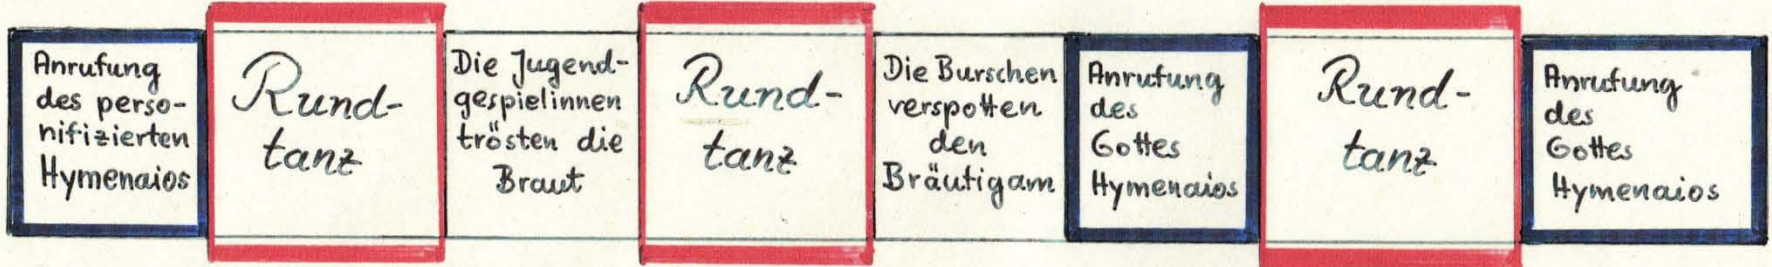 Anrufung
des perso-
nifizierten
Hymenaios
Rund-
tanz
Die Jugend-
gespielinnen
trösten die
Braut
Rund-
tanz
Die Burschen
verspotten
den
Bräutigam
Anrufung
des
Gottes
Hymenaios
Rund-
tanz
Anrufung
des
Gottes
Hymenaios